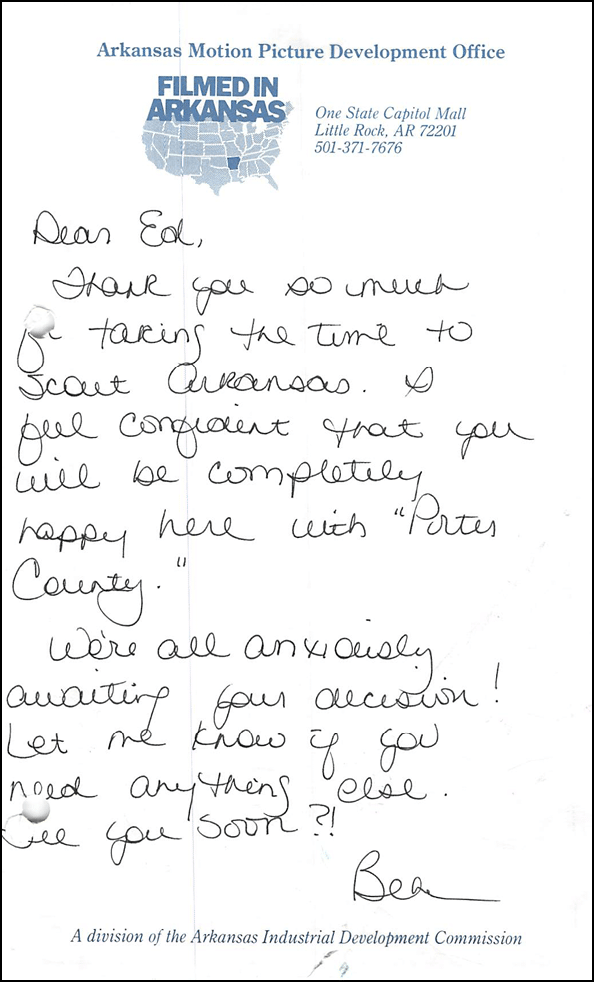 Arkansas Motion Picture Development Office
FILMED IN
ARKANSAS
One State Capitol Mall
Little Rock, AR 72201
501-371-7676
Dear Ed,
Thank you so much
for taking the time to
scout Arkansas. I
feel confident that you
will be completely
happy here with "Porter
County."
We're all anxiously
awaiting your decision!
Let me know if you
need anything else.
See you soon?!
Bea
A division of the Arkansas Industrial Development Commission